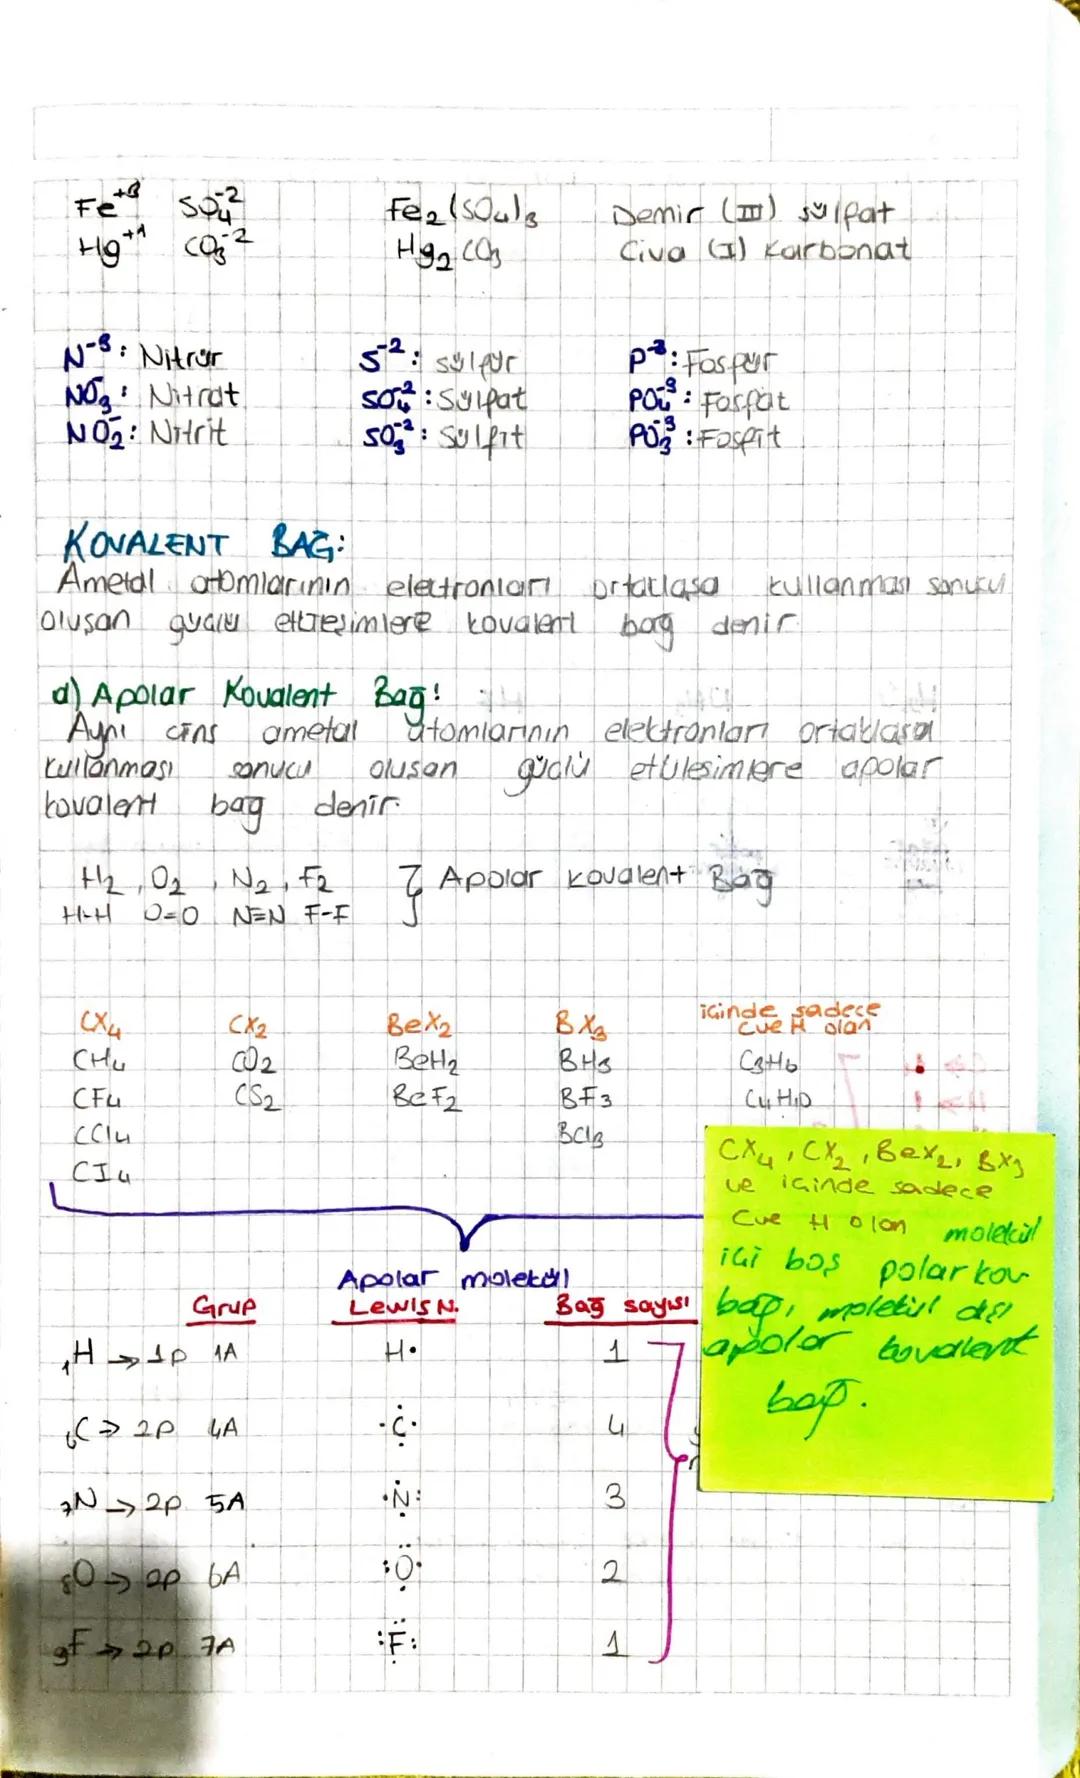 Fe⁺³ SO₄⁻² Fe₂(SO₄)₃ Demir (III) sülfat
Hg⁺¹ CO₃⁻² Hg₂CO₃ Civa (I) Karbonat
N⁻³: Nitrür S⁻²: sülfür P⁻³: Fosfür
NO₃⁻: Nitrat SO₄⁻²: Sülfat PO₄⁻³: Fosfat
NO₂⁻: Nitrit SO₃⁻²: Sülfit PO₃⁻³: Fosfit
KOVALENT BAĞ:
Ametal atomlarının electronları ortaklaşa kullanması sonucu
oluşan güçlü etkileşimlere kovalent bağ denir.
d) Apolar Kovalent Bağ:
Aynı cins ametal atomlarının elektronları ortaklaşa
kullanması sonucu olusan güçlü etkileşimlere apolar
kovalent bağ denir.
H₂, O₂, N₂, F₂ } Apolar kovalent Bağ
H-H O=O N≡N F-F
CX₄ CX₂ BeX₂ BX₃ içinde sadece
C ve H olan
CH₄ CO₂ BeH₂ BH₃ C₃H₆
CF₄ CS₂ BeF₂ BF₃ C₄H₁₀
CCl₄ BCl₃
CI₄
CX₄, CX₂, BeX₂, BX₃
ve içinde sadece
C ve H olan molekül
içi boş polar kov
bağ, molekül dışı
apolar kovalent
bağ.
Apolar molekül
Grup Lewis N. Bağ sayısı
₁H → 1p 1A H• 1
₆C → 2p 4A ·C· 4
₇N → 2p 5A ·N: 3
₈O → 2p 6A :O· 2
₉F → 2p 7A :F: 1